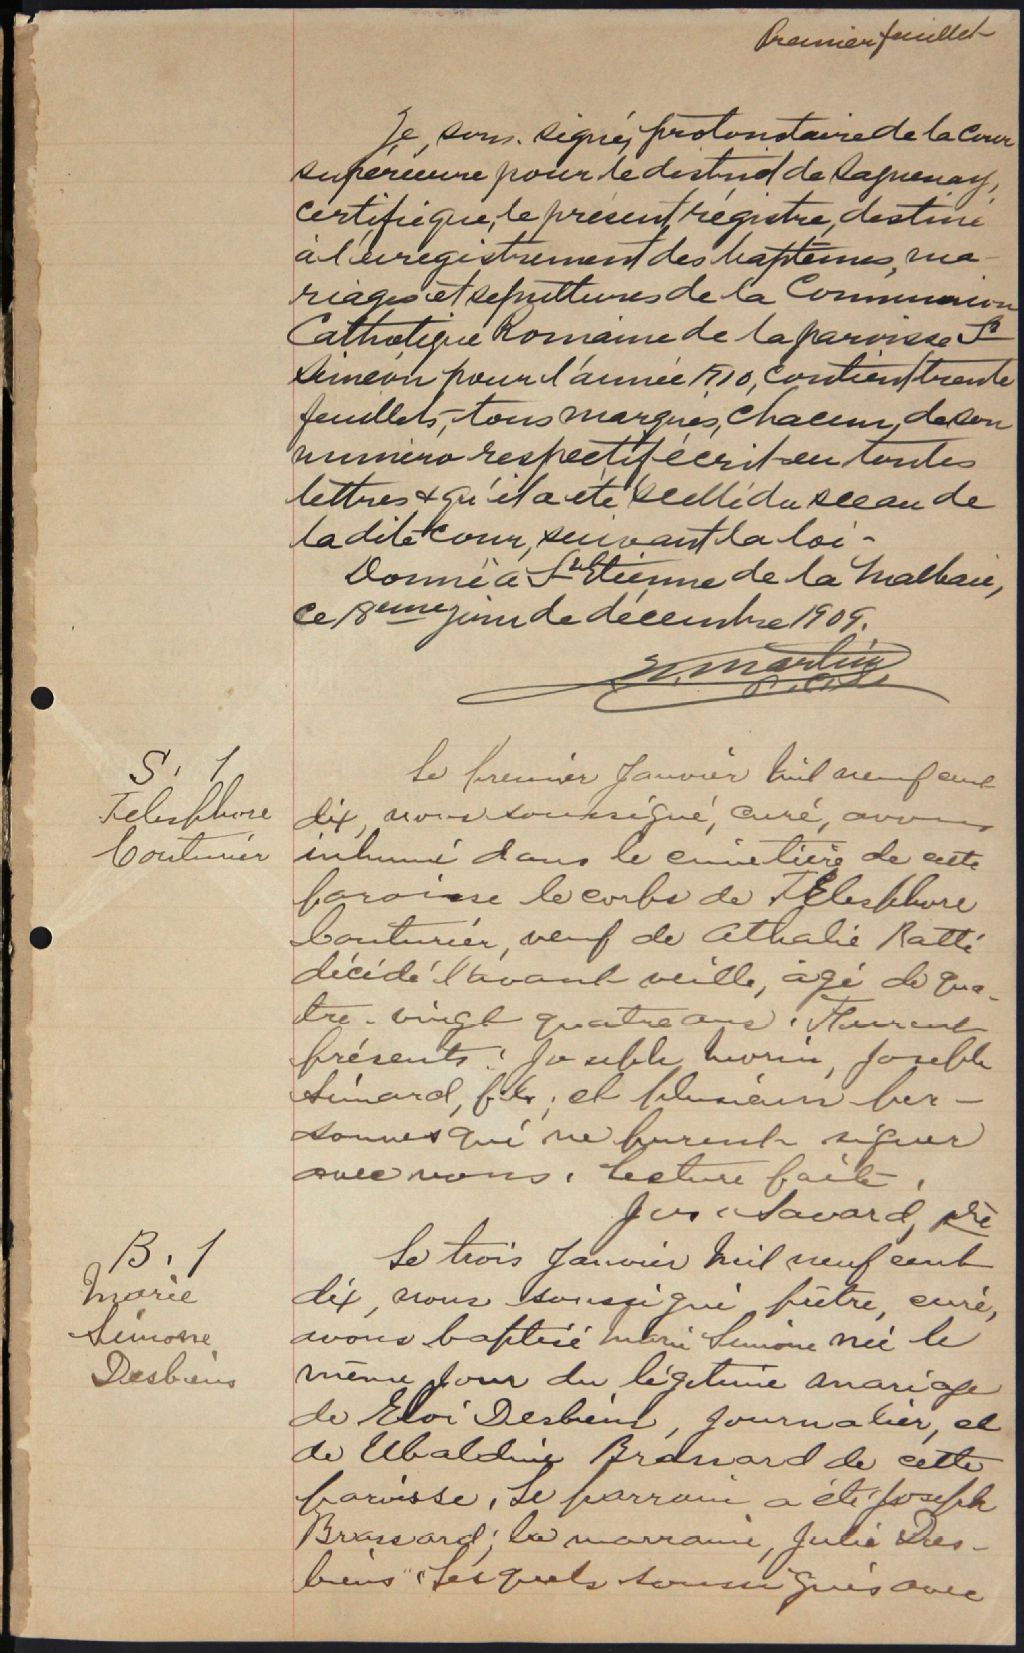 Premier feuillet
Je, sous-signé, protonotaire de la Cour
supérieure pour le district de Saguenay,
certifie que, le présent, régistre, destiné
à l'enregistrement des baptêmes, ma-
riages et sépultures de la Communion
Catholique Romaine de la paroisse St
Siméon pour l'année 1910, contient trente
feuillets, tous marqués, chacun, de son
numéro respectif écrit en toutes
lettres & qu'il a été scellé du sceau de
la dite Cour, suivant la loi -
Donné à St Etienne de la Malbaie,
ce 18ème jour de décembre 1909.
Martin
P.C.S.
S. 1
Télesphore
Couturier
Le premier Janvier mil neuf cent
dix, nous soussigné, curé, avons
inhumé dans le cimetière de cette
paroisse le corps de Télesphore
Couturier, veuf de Athalie Ratté
décédé l'avant veille, âgé de qua-
tre-vingt quatre ans. Furent
présents: Joseph Morin, Joseph
Simard, fils; et plusieurs per-
sonnes qui ne purent signer
avec nous. Lecture faite.
Jos. Savard, ptre
B. 1
Marie
Simone
Desbiens
Le trois Janvier mil neuf cent
dix, nous soussigné prêtre, curé,
avons baptisé Marie Simone née le
même jour du légitime mariage
de Eloi Desbiens, journalier, et
de Ubaldine Brassard de cette
paroisse. Le parrain a été Joseph
Brassard; la marraine, Julie Des-
biens lesquels soussignés avec